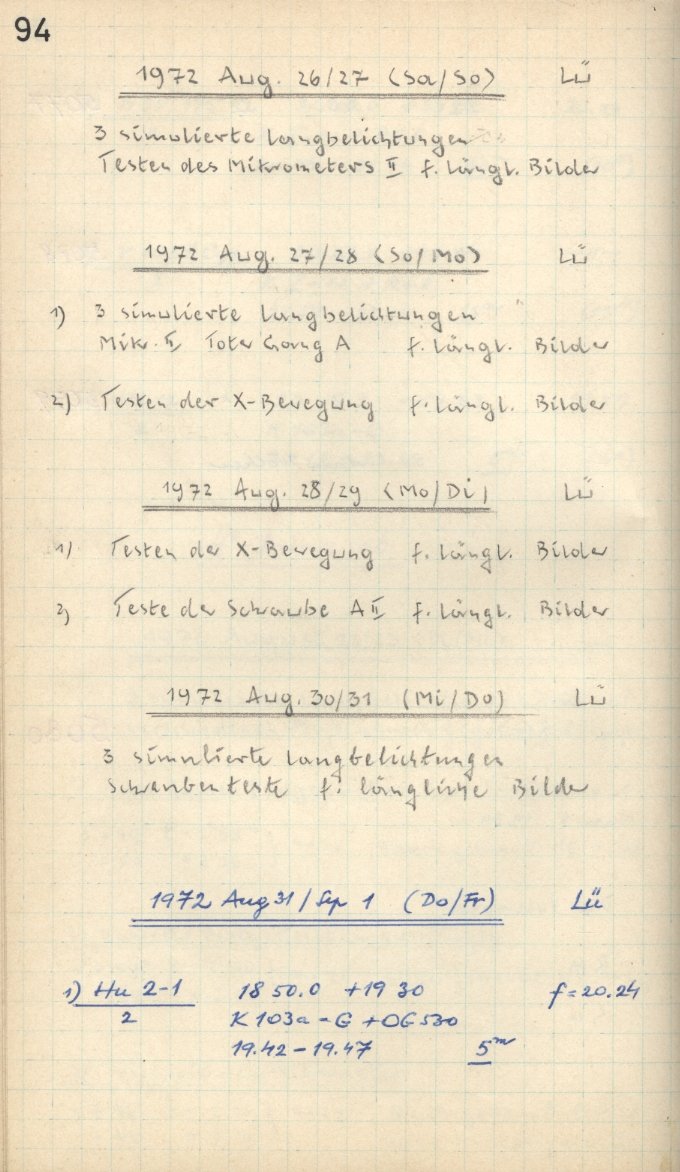 94
1972 Aug. 26/27 (Sa/So) Lü
3 simulierte Langbelichtungen
Testen des Mikrometers II f. längl. Bilder
1972 Aug. 27/28 (So/Mo) Lü
1) 3 simulierte Langbelichtungen
Mikr. II Toter Gang A f. längl. Bilder
2) Testen der X-Bewegung f. längl. Bilder
1972 Aug. 28/29 (Mo/Di) Lü
1) Testen der X-Bewegung f. längl. Bilder
2) Teste der Schraube A II f. längl. Bilder
1972 Aug. 30/31 (Mi/Do) Lü
3 simulierte Langbelichtungen
Schraubenteste f. längliche Bilder
1972 Aug 31/Sep 1 (Do/Fr) Lü
1) Hu 2-1 18 50.0 +19 30 f=20.24
2 K 103a-G + OG530
19.42-19.47 5m